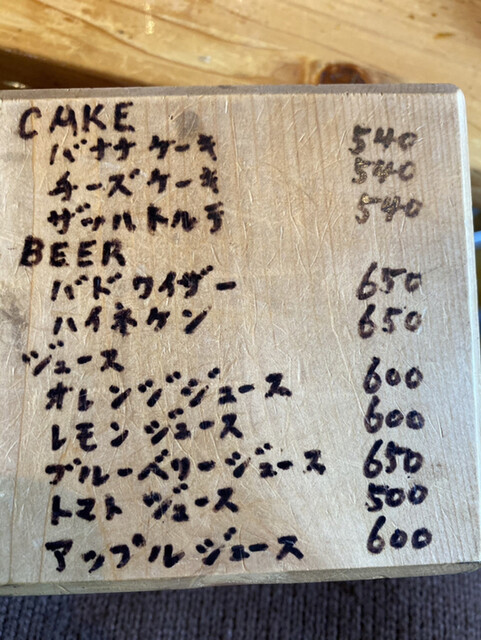 CAKE
バナナケーキ 540
チーズケーキ 540
ザッハトルテ 540
BEER
バドワイザー 650
ハイネケン 650
ジュース
オレンジジュース 600
レモンジュース 600
ブルーベリージュース 650
トマトジュース 500
アップルジュース 600